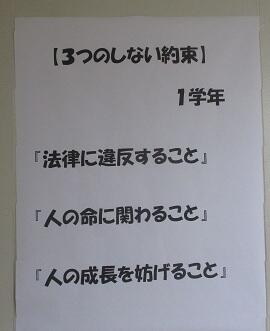 【３つのしない約束】
１学年
『法律に違反すること』
『人の命に関わること』
『人の成長を妨げること』